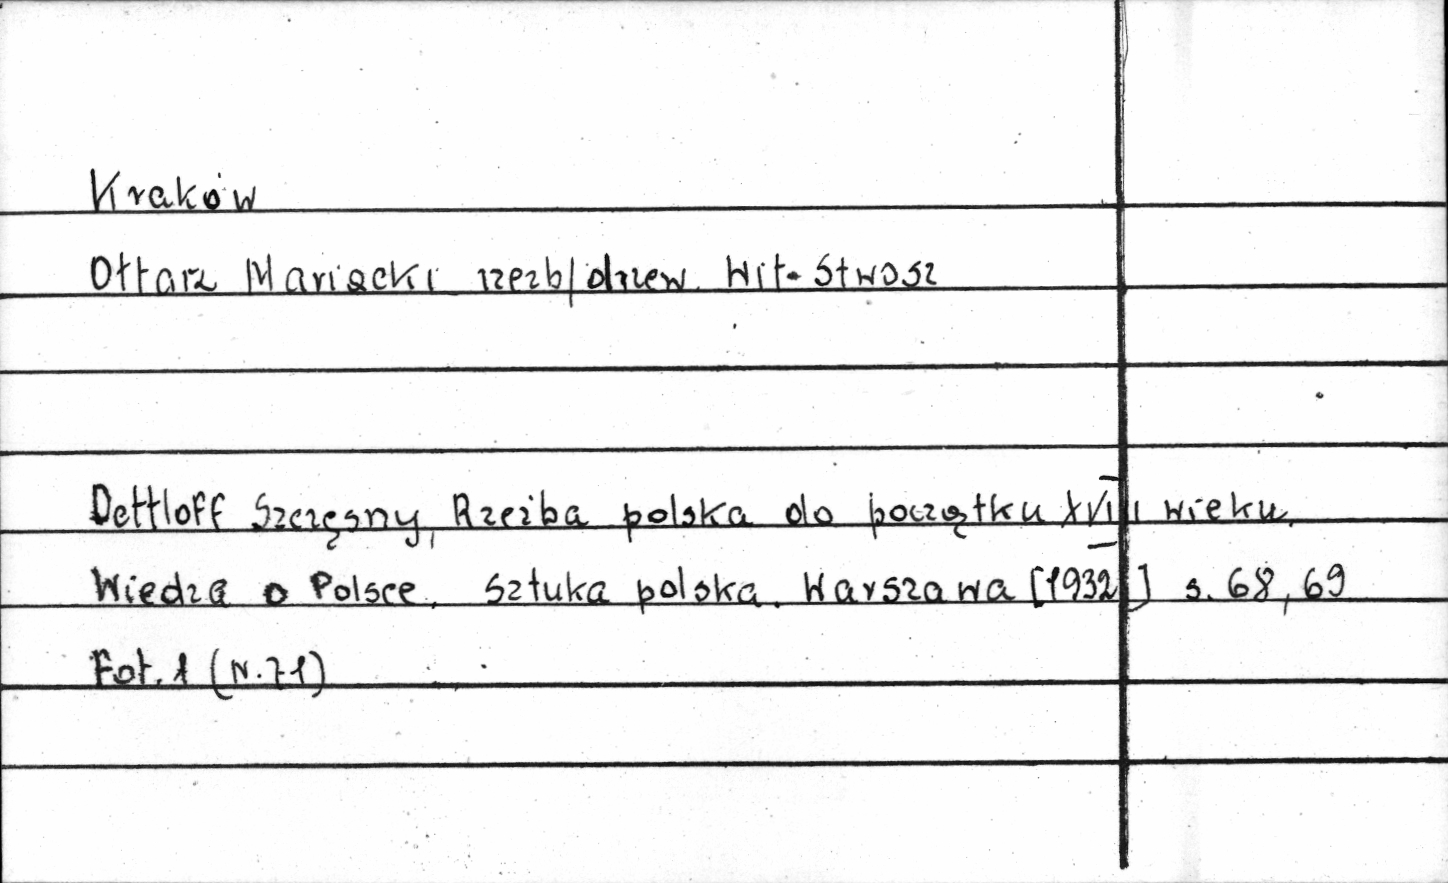 Kraków
Ołtarz Mariacki rzezb/drzew. Wit. Stwosz
Dettloff Szczęsny, Rzeźba polska do początku XVIII wieku.
Wiedza o Polsce. Sztuka polska. Warszawa [1932] s. 68, 69
Fot. 1 (N.71)